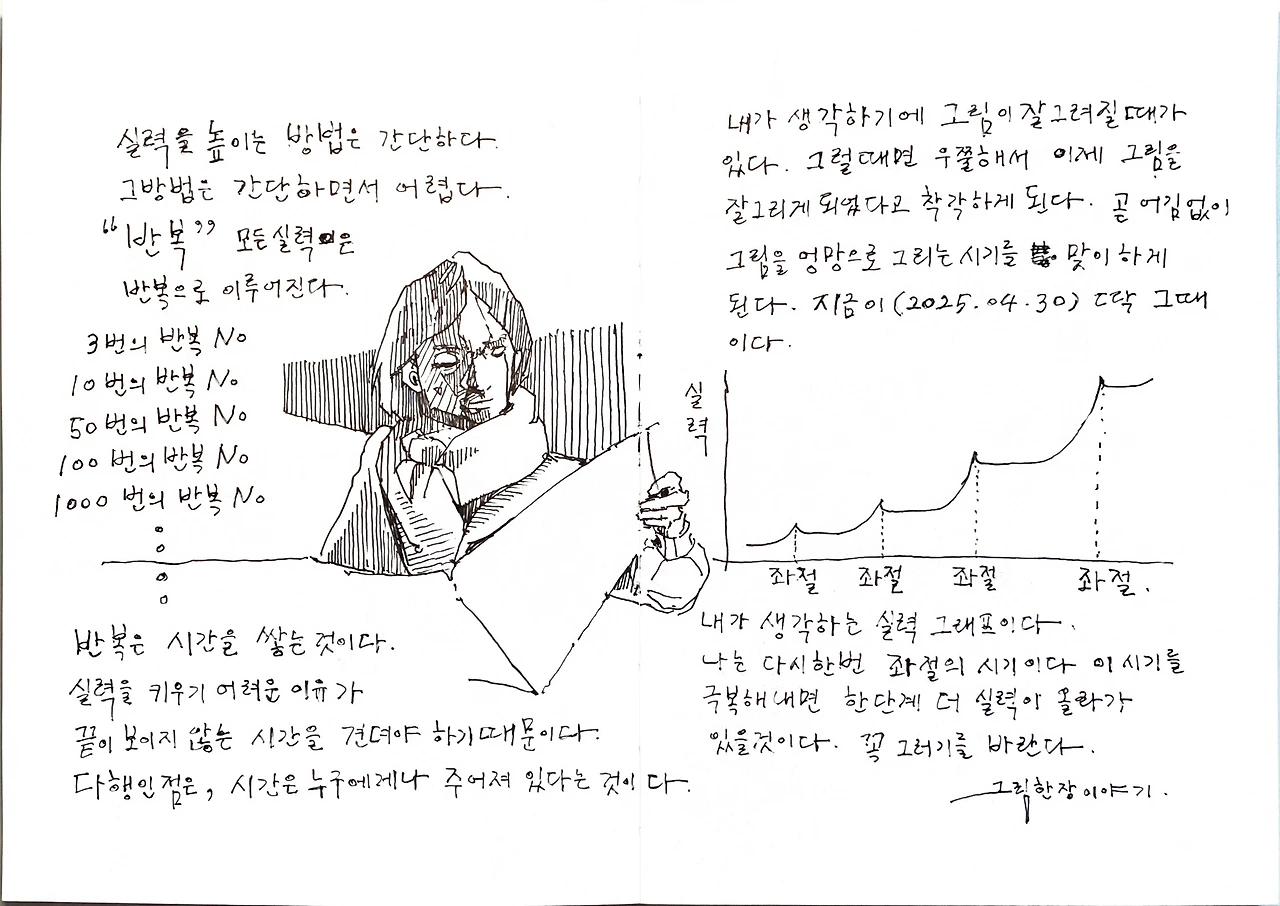 실력을 높이는 방법은 간단하다.
그방법은 간단하면서 어렵다.
"반복" 모든실력은
반복으로 이루어진다.
3번의 반복 No
10번의 반복 No
50번의 반복 No
100번의 반복 No
1000번의 반복 No
반복은 시간을 쌓는것이다.
실력을 키우기 어려운 이유가
끝이 보이지 않는 시간을 견뎌야 하기때문이다.
다행인점은, 시간은 누구에게나 주어져 있다는 것이다.
내가 생각하기에 그림이잘그려질때가
있다. 그럴때면 우쭐해서 이제 그림을
잘그리게되었다고 착각하게 된다. 곧 어김없이
그림을 엉망으로 그리는시기를 맞이하게
된다. 지금이(2025.04.30) 딱 그때
이다.
실력
좌절 좌절 좌절 좌절.
내가 생각하는 실력 그래프이다.
나는 다시한번 좌절의 시기이다 이시기를
극복해내면 한단계 더 실력이 올라가
있을것이다. 꼭 그러기를 바란다.
그림한장이야기.